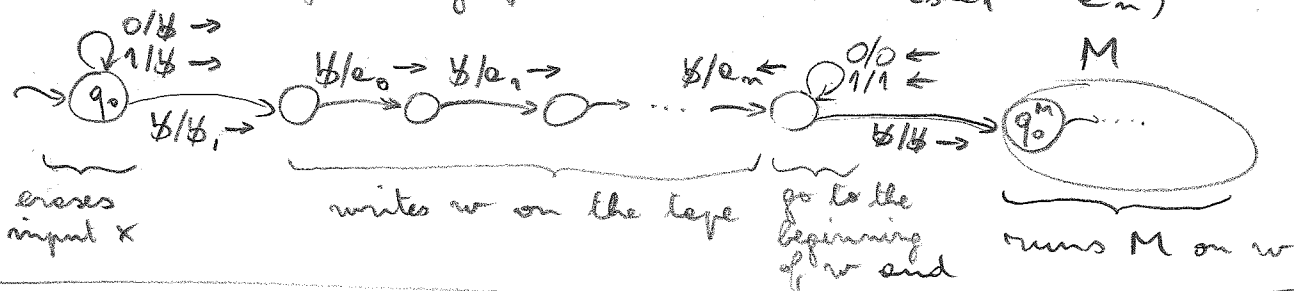 0/ƀ →
1/ƀ →
q₀
ƀ/ƀ, →
ƀ/a₀ →
ƀ/a₁ →
...
ƀ/aₙ ←
0/0 ←
1/1 ←
ƀ/ƀ →
M
q₀ᴹ
....
erases
input x
writes w on the tape
go to the
beginning
of w and
runs M on w